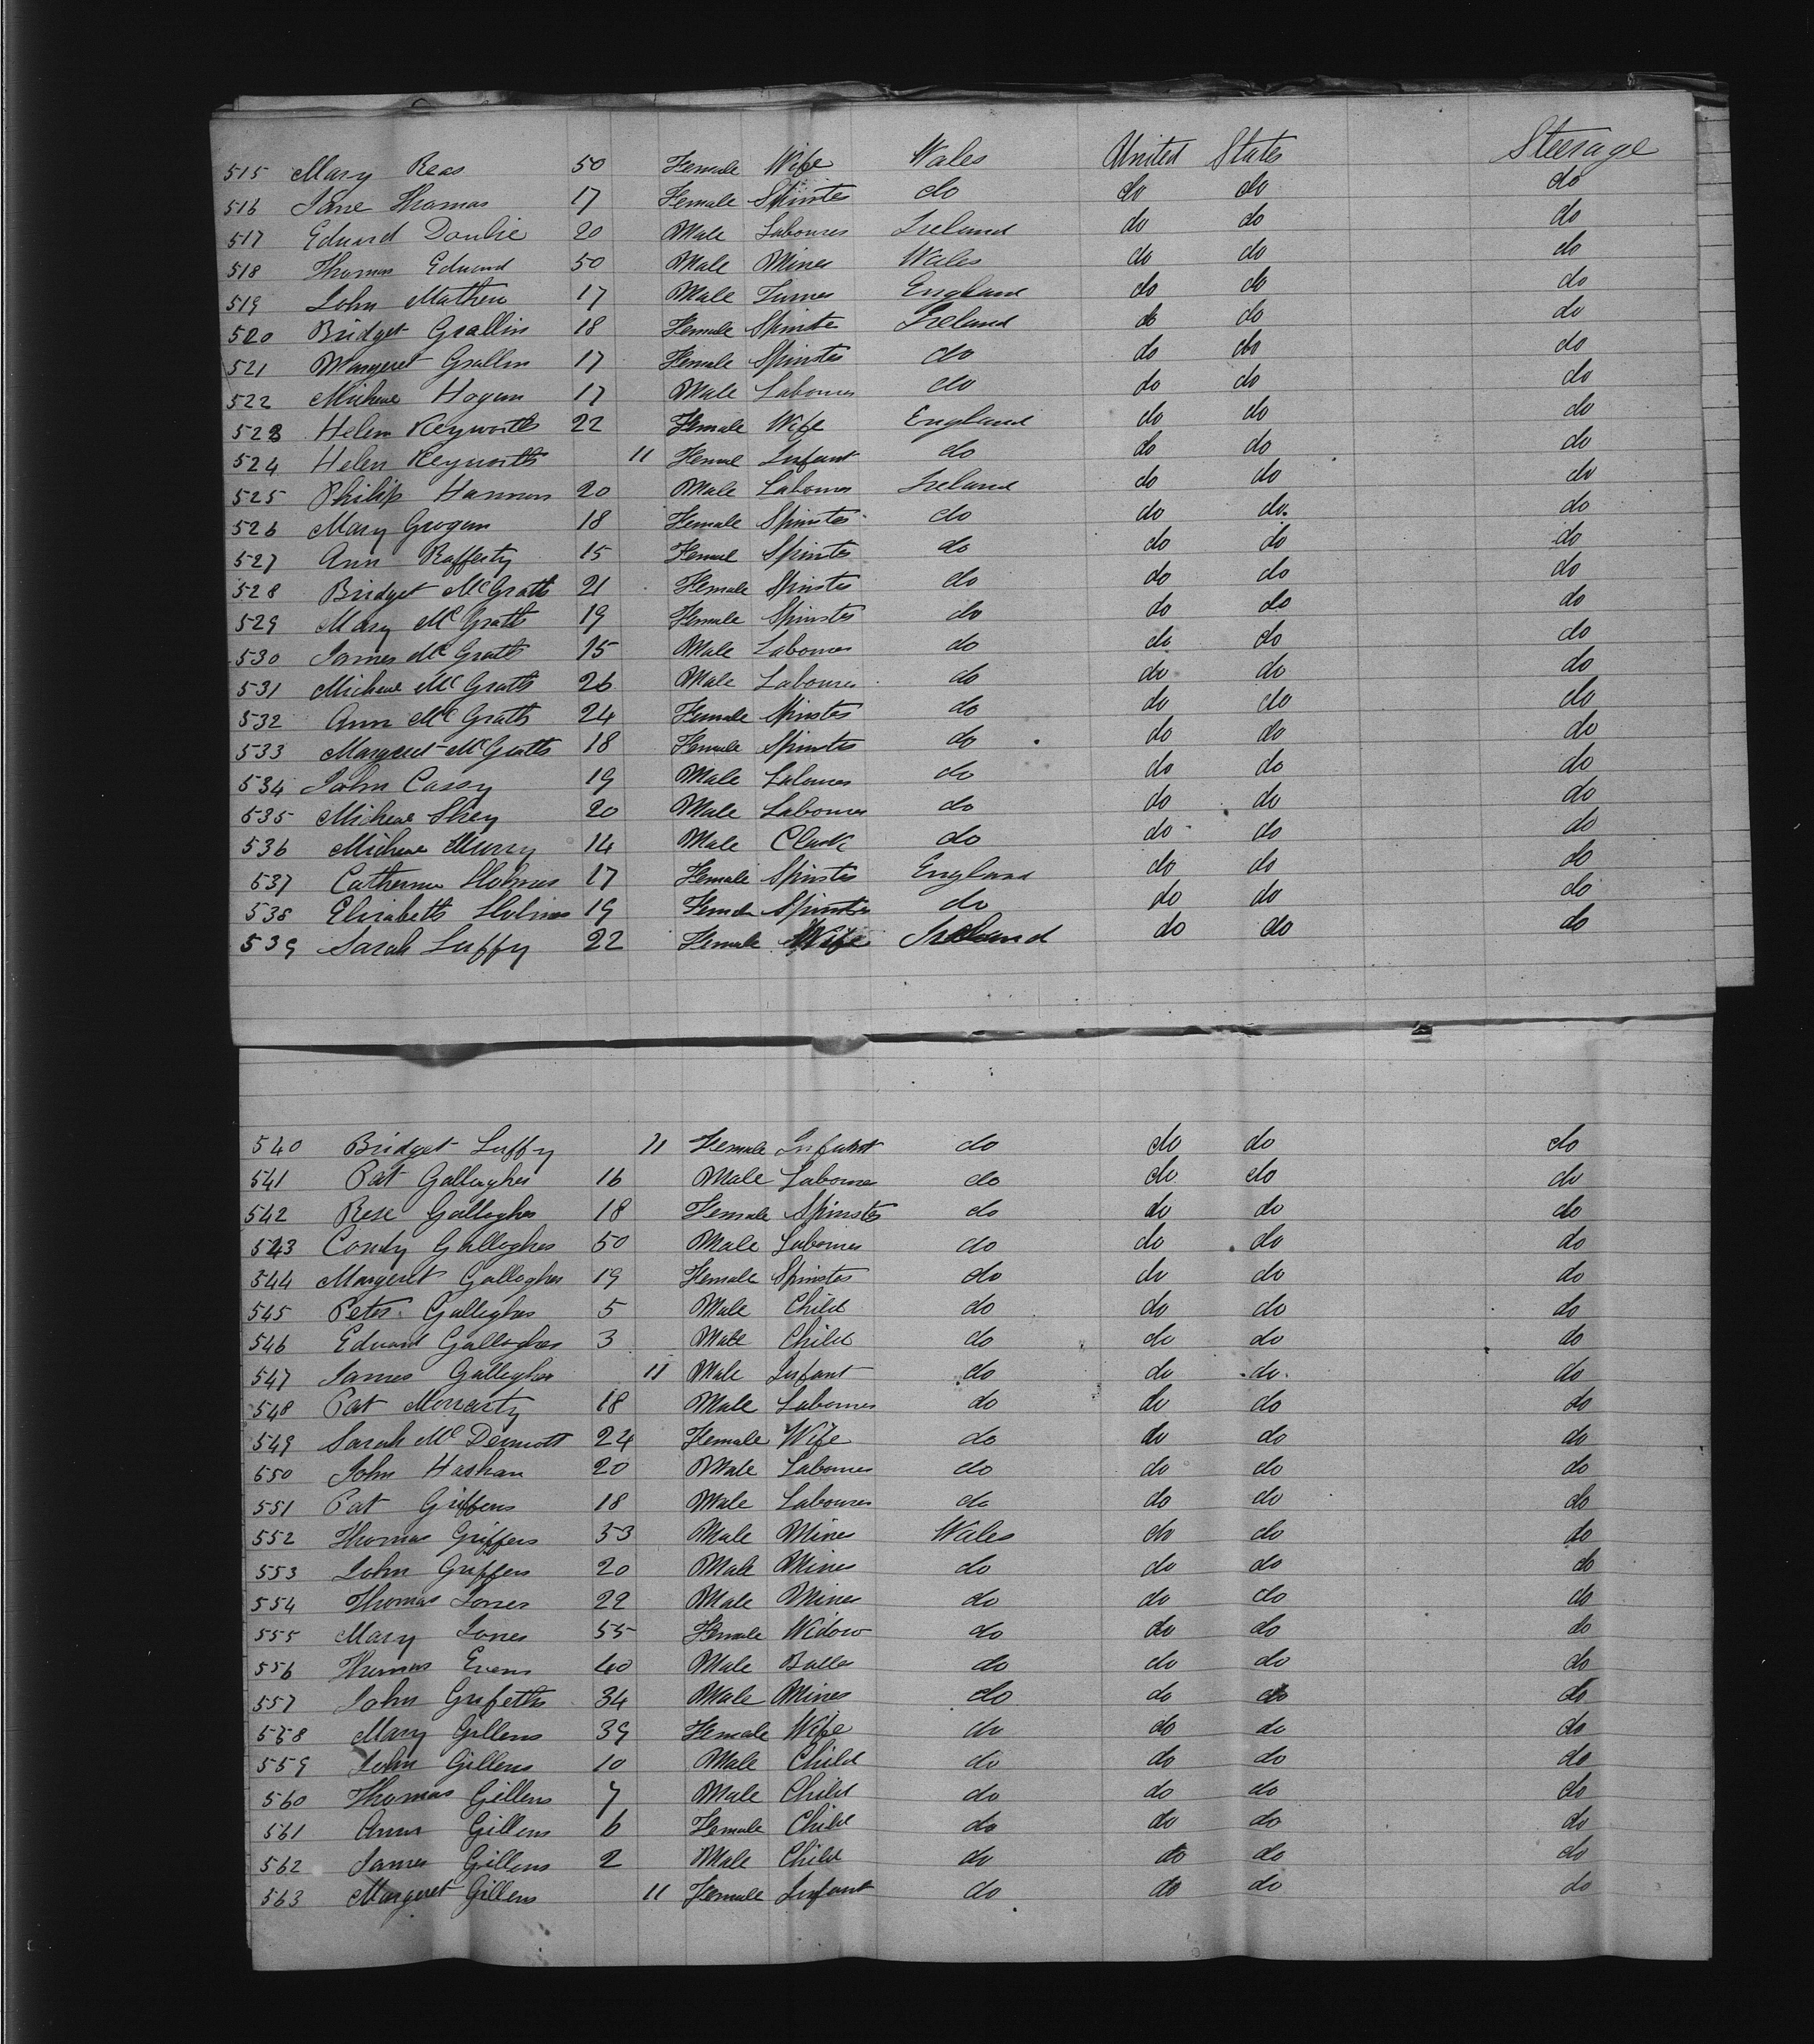 515 Mary Rees 50 Female Wife Wales United States Steerage
516 Jane Thomas 17 Female Spinster do do do do
517 Edward Donlie 20 Male Labourer Ireland do do do
518 Thomas Edward 50 Male Miner Wales do do do
519 John Mathew 17 Male Turner England do do do
520 Bridget Grallin 18 Female Spinster Ireland do do do
521 Margeret Grallin 17 Female Spinster do do do do
522 Micheal Hogan 17 Male Labourer do do do do
523 Helen Keyworth 22 Female Wife England do do do
524 Helen Keyworth 11 Female Infant do do do do
525 Philip Hannon 20 Male Labourer Ireland do do do
526 Mary Grogan 18 Female Spinster do do do do
527 Ann Rafferty 15 Female Spinster do do do do
528 Bridget McGrath 21 Female Spinster do do do do
529 Mary McGrath 19 Female Spinster do do do do
530 James McGrath 15 Male Labourer do do do do
531 Micheal McGrath 26 Male Labourer do do do do
532 Ann McGrath 24 Female Spinster do do do do
533 Margeret McGrath 18 Female Spinster do do do do
534 John Casey 19 Male Labourer do do do do
535 Micheal Shey 20 Male Labourer do do do do
536 Micheal Murry 14 Male Clerk do do do do
537 Catherine Holmes 17 Female Spinster England do do do
538 Elisabeth Holmes 19 Female Spinster do do do do
539 Sarah Luffy 22 Female Wife Ireland do do do
540 Bridget Luffy 11 Female Infant do do do do
541 Pat Gallagher 16 Male Labourer do do do do
542 Rose Gallagher 18 Female Spinster do do do do
543 Condy Gallogher 50 Male Labourer do do do do
544 Margeret Gallogher 19 Female Spinster do do do do
545 Peter Gallegher 5 Male Child do do do do
546 Edward Gallogher 3 Male Child do do do do
547 James Gallegher 11 Male Infant do do do do
548 Pat Morriarty 18 Male Labourer do do do do
549 Sarah McDermott 24 Female Wife do do do do
550 John Hashan 20 Male Labourer do do do do
551 Pat Griffens 18 Male Labourer do do do do
552 Thomas Griffens 53 Male Miner Wales do do do
553 John Griffens 20 Male Miner do do do do
554 Thomas Jones 22 Male Miner do do do do
555 Mary Jones 55 Female Widow do do do do
556 Thomas Evans 40 Male do do do do
557 John Grifeths 34 Male Miner do do do do
558 Mary Gillens 39 Female Wife do do do do
559 John Gillens 10 Male Child do do do do
560 Thomas Gillens 7 Male Child do do do do
561 Ann Gillens 6 Female Child do do do do
562 James Gillens 2 Male Child do do do do
563 Margeret Gillens 11 Female Infant do do do do